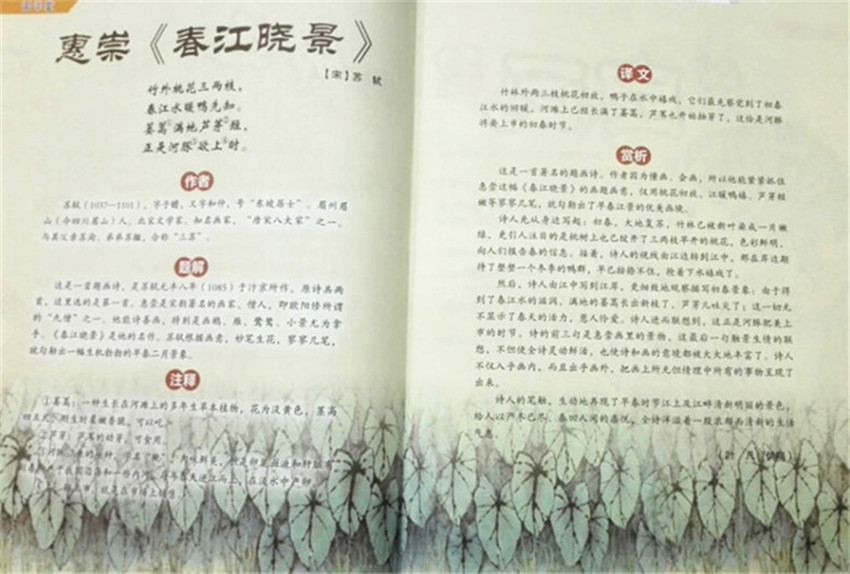 惠崇《春江晓景》
【宋】苏轼
竹外桃花三两枝，
春江水暖鸭先知。
蒌蒿①满地芦芽②短，
正是河豚③欲上④时。
作者
苏轼（1037—1101），字子瞻，又字和仲，号“东坡居士”。眉州眉
山（今四川眉山）人。北宋文学家、知名画家，“唐宋八大家”之一。
与其父苏洵、弟弟苏辙，合称“三苏”。
题解
这是一首题画诗，是苏轼元丰八年（1085）于汴京所作。原诗共两
首，这里选的是第一首。惠崇是宋朝著名的画家、僧人，即欧阳修所谓
的“九僧”之一。他能诗善画，特别是画鹅、雁、鹭鸶、小景尤为拿
手。《春江晓景》是他的名作。苏轼根据画意，妙笔生花，寥寥几笔，
就勾勒出一幅生机勃勃的早春二月景象。
注释
①蒌蒿：一种生长在河滩上的多年生草本植物，花为淡黄色，茎高
四五尺，刚生时柔嫩香脆，可以吃。
②芦芽：芦苇的幼芽，可食用。
译文
竹林外两三枝桃花初放，鸭子在水中嬉戏，它们最先察觉到了初春
江水的回暖。河滩上已经长满了蒌蒿，芦苇也开始抽芽了，这恰是河豚
将要上市的初春时节。
赏析
这是一首著名的题画诗。作者因为懂画、会画，所以他能紧紧抓住
惠崇这幅《春江晓景》的画题画意，仅用桃花初放、江暖鸭嬉、芦芽短
嫩等寥寥几笔，就勾勒出了早春江景的优美画境。
诗人先从身边写起：初春，大地复苏，竹林已被新叶染成一片嫩
绿，更引人注目的是桃树上也已绽开了三两枝早开的桃花，色彩鲜明，
向人们报告春的信息。接着，诗人的视线由江边转到江中，那在岸边期
待了整整一个冬季的鸭群，早已按捺不住，抢着下水嬉戏了。
然后，诗人由江中写到江岸，更细致地观察描写初春景象：由于得
到了春江水的滋润，满地的蒌蒿长出新枝了，芦芽儿吐尖了；这一切无
不显示了春天的活力，惹人怜爱。诗人进而联想到，这正是河豚肥美上
市的时节。诗的前三句是惠崇画里的景物，这最后一句触景生情的联
想，不但使全诗灵动鲜活，也使诗和画的意境都被大大地丰富了。诗人
不仅入乎画内，而且出乎画外，把画上所无但情理中所有的事物呈现了
出来。
诗人的笔触，生动地再现了早春时节江上及江畔清新明丽的景色，
给人以严冬已尽、春回人间的喜悦，全诗洋溢着一股浓郁而清新的生活
气息。